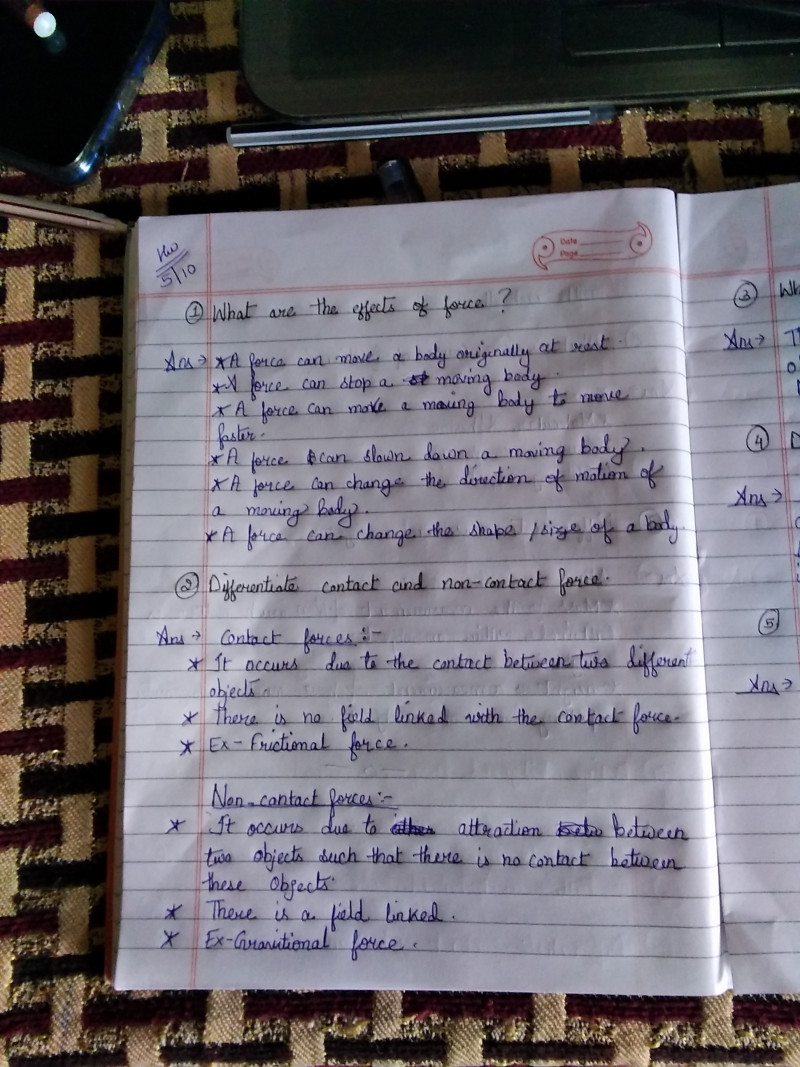 HW
5/10
Date
Page
① What are the effects of force ?
Ans → * A force can move a body originally at rest.
* A force can stop a moving body.
* A force can make a moving body to move
faster.
* A force can slown down a moving body.
* A force can change the direction of motion of
a moving body.
* A force can change the shape /size of a body.
② Differentiate contact and non-contact force.
Ans → Contact forces:-
* It occurs due to the contact between two different
objects.
* There is no field linked with the contact force.
* Ex- Frictional force.
Non-contact forces:-
* It occurs due to attraction between
two objects such that there is no contact between
these objects.
* There is a field linked.
* Ex-Gravitional force.
③ Wh
Ans →
④
Ans →
⑤
Ans →